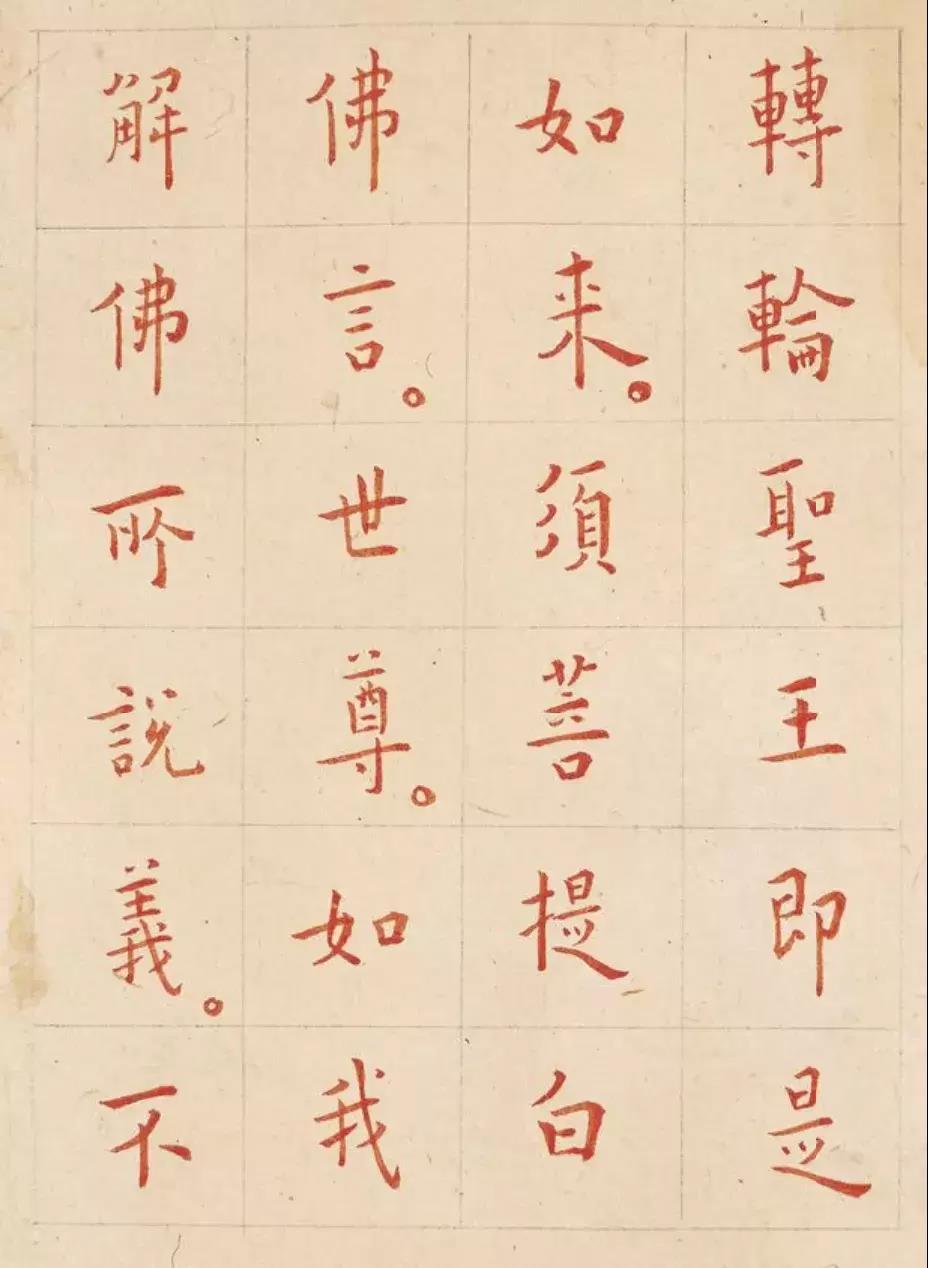 轉輪聖王即是
如来。須菩提白
佛言。世尊。如我
解佛所說義。不